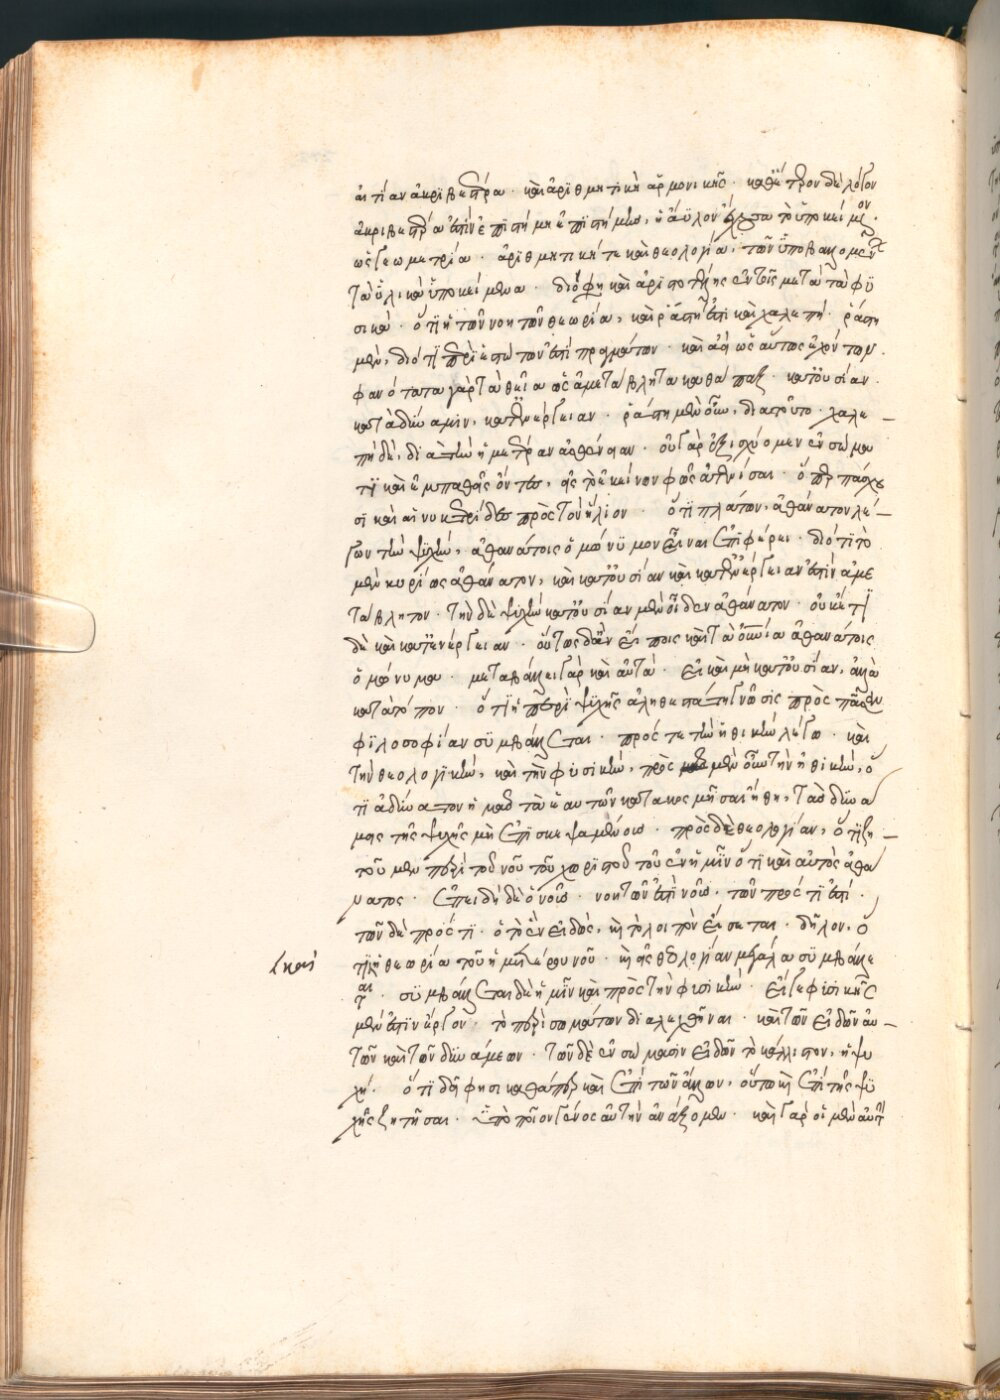 αἰτίαν ἀκριβεστέρα · καὶ ἀριθμητικὴ ἁρμονικῆς · καθ' ἕτερον δὲ λόγον
ἀκριβεστέρα ἐστὶν ἐπιστήμη ἐπιστήμης, ἡ ἄϋλον ἔχουσα τὸ ὑποκείμενον ·
ὡς γεωμετρία · ἀριθμητική τε καὶ θεολογία, τῶν ὑποβαλλομένων
τὰ ὑλικὰ ὑποκείμενα · διό φη καὶ ἀριστοτέλης ἐν τοῖς μετὰ τὰ φυ
σικά · ὅτι ἡ τῶν νοητῶν θεωρία, καὶ ῥάστη ἐστὶ καὶ χαλεπή · ῥάστη
μὲν, διότι περὶ ἑστώτων ἐστὶ πραγμάτων · καὶ ἀεὶ ὡσαύτως ἐχόντων ·
φανότατα γὰρ τὰ θεῖα ὡς ἀμετάβλητα καθάπαξ · κατ' οὐσίαν ·
κατὰ δύναμιν, κατ' ἐνέργειαν · ῥάστη μὲν οὖν, διὰ τοῦτο · χαλε
πὴ δὲ, διὰ τὴν ἡμετέραν ἀσθένειαν · οὐ γὰρ ἐξισχύομεν ἐν σώμα
τι καὶ ἐμπαθῶς ὄντες, εἰς τὸ ἐκείνων φῶς ἀτενίσαι · ὅπερ πάσχου
σι καὶ αἱ νυκτερίδες πρὸς τὸν ἥλιον · ὅτι πλάτων, ἀθάνατον λέ
γων τὴν ψυχὴν, ἀθανάτοις ὁμώνυμον εἶναι ἐπιφέρει · διότι τὸ
μὲν κυρίως ἀθάνατον, καὶ κατ' οὐσίαν καὶ κατ' ἐνέργειαν ἐστὶν ἀμε
τάβλητον · τὴν δὲ ψυχὴν κατ' οὐσίαν μὲν οἶδεν ἀθάνατον · οὐκέτι
δὲ καὶ κατ' ἐνέργειαν · οὕτως δ' ἂν εἴποις καὶ τὰ οὐράνια ἀθανάτοις
ὁμώνυμα · μεταβάλλει γὰρ καὶ αὐτὰ · εἰ καὶ μὴ κατ' οὐσίαν, ἀλλὰ
κατὰ τόπον · ὅτι ἡ περὶ ψυχῆς ἀληθεστάτη γνῶσις πρὸς πᾶσαν
φιλοσοφίαν συμβάλλεται · πρός τε τὴν ἠθικὴν λέγω · καὶ
τὴν θεολογικὴν, καὶ τὴν φυσικὴν, πρὸς μὲν οὖν τὴν ἠθικὴν, ὅ
τι ἀδύνατον ἡμᾶς τὰ ἑαυτῶν κατακοσμῆσαι ἤθη, τὰς δυνά
μεις τῆς ψυχῆς μὴ ἐπισκεψαμένοις · πρὸς δὲ θεολογίαν, ὅτι ζη
τοῦμεν περὶ τοῦ νοῦ τοῦ χωριστοῦ τοῦ ἐν ἡμῖν ὅτι καὶ αὐτὸς ἀθά
νατος · ἐπειδὴ δὲ ὁ νοῦς · νοητῶν ἐστὶ νοῦς · τῶν πρός τί ἐστι ·
τῶν δὲ πρός τι · ὁ τὸ ἓν εἰδὼς, καὶ τὸ λοιπὸν εἴσεται · δῆλον, ὅ
τι καὶ ἡ θεωρία τοῦ ἡμετέρου νοῦ · καὶ εἰς θεολογίαν μεγάλα συμβάλλε
ται · συμβάλλεται δὲ ἡμῖν καὶ πρὸς τὴν φυσικὴν · εἴγε φυσικῆς
μὲν ἐστὶν ἔργον · τὸ περὶ σωμάτων διαλεχθῆναι · καὶ τῶν εἰδῶν αὐ
τῶν καὶ τῶν δυνάμεων · τῶν δὲ ἐν σώμασιν εἰδῶν τὸ κάλλιστον, ἡ ψυ
χή · ὅτι δὲ φησι καθάπερ καὶ ἐπὶ τῶν ἄλλων, οὕτω καὶ ἐπὶ τῆς ψυ
χῆς ζητῆσαι · ὑπὸ ποῖον γένος αὐτὴν ἀνάξομεν · καὶ γὰρ οἱ μὲν αὐτὴν